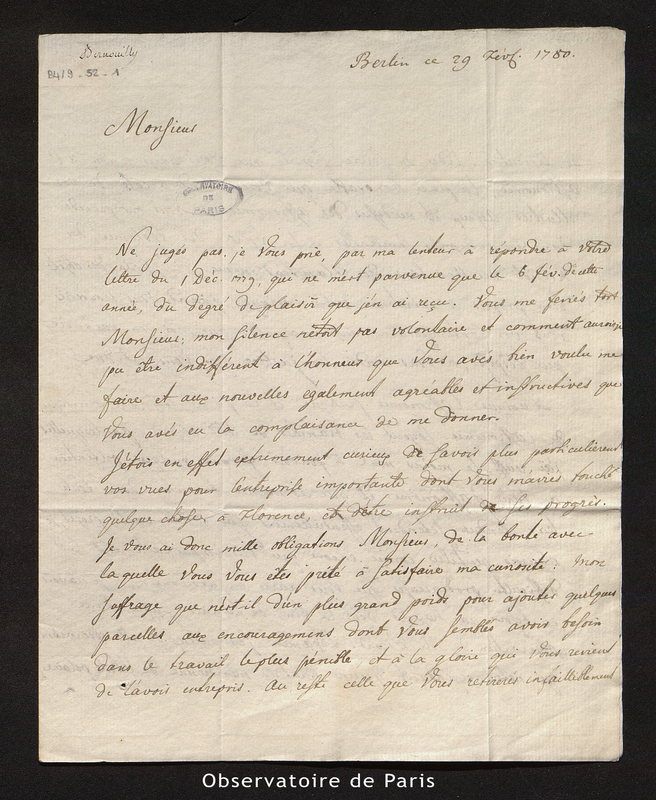 Bernoully
B4/9 - 52 - 1
Berlin ce 29 Févr. 1780.
Monsieur
OBSERVATOIRE
DE
PARIS
Ne jugés pas, je Vous prie, par ma lenteur à repondre à Votre
lettre du 1 Déc. 1779, qui ne m'est parvenue que le 6 fév. de cette
année, du degré de plaisir que j'en ai reçu. Vous me feriés tort
Monsieur; mon silence n'etoit pas volontaire et comment aurois-je
pu être indifférent à l'honneur que Vous avés bien voulu me
faire et aux nouvelles également agreables et instructives que
Vous avés eu la complaisance de me donner.
J'étois en effet extremement curieux de savoir plus particulierement
vos vues pour l'entreprise importante dont Vous m'aviés touché
quelque chose à Florence, et d'être instruit de ses progrès.
Je vous ai donc mille obligations Monsieur, de la bonté avec
laquelle Vous Vous êtes prété à satisfaire ma curiosité. Mon
suffrage que n'est-il d'un plus grand poids pour ajouter quelques
parcelles aux encouragemens dont Vous semblés avoir besoin
dans le travail le plus pénible, et à la gloire qui Vous revient
de l'avoir entrepris. Au reste celle que Vous retirerés infailliblement
Observatoire de Paris